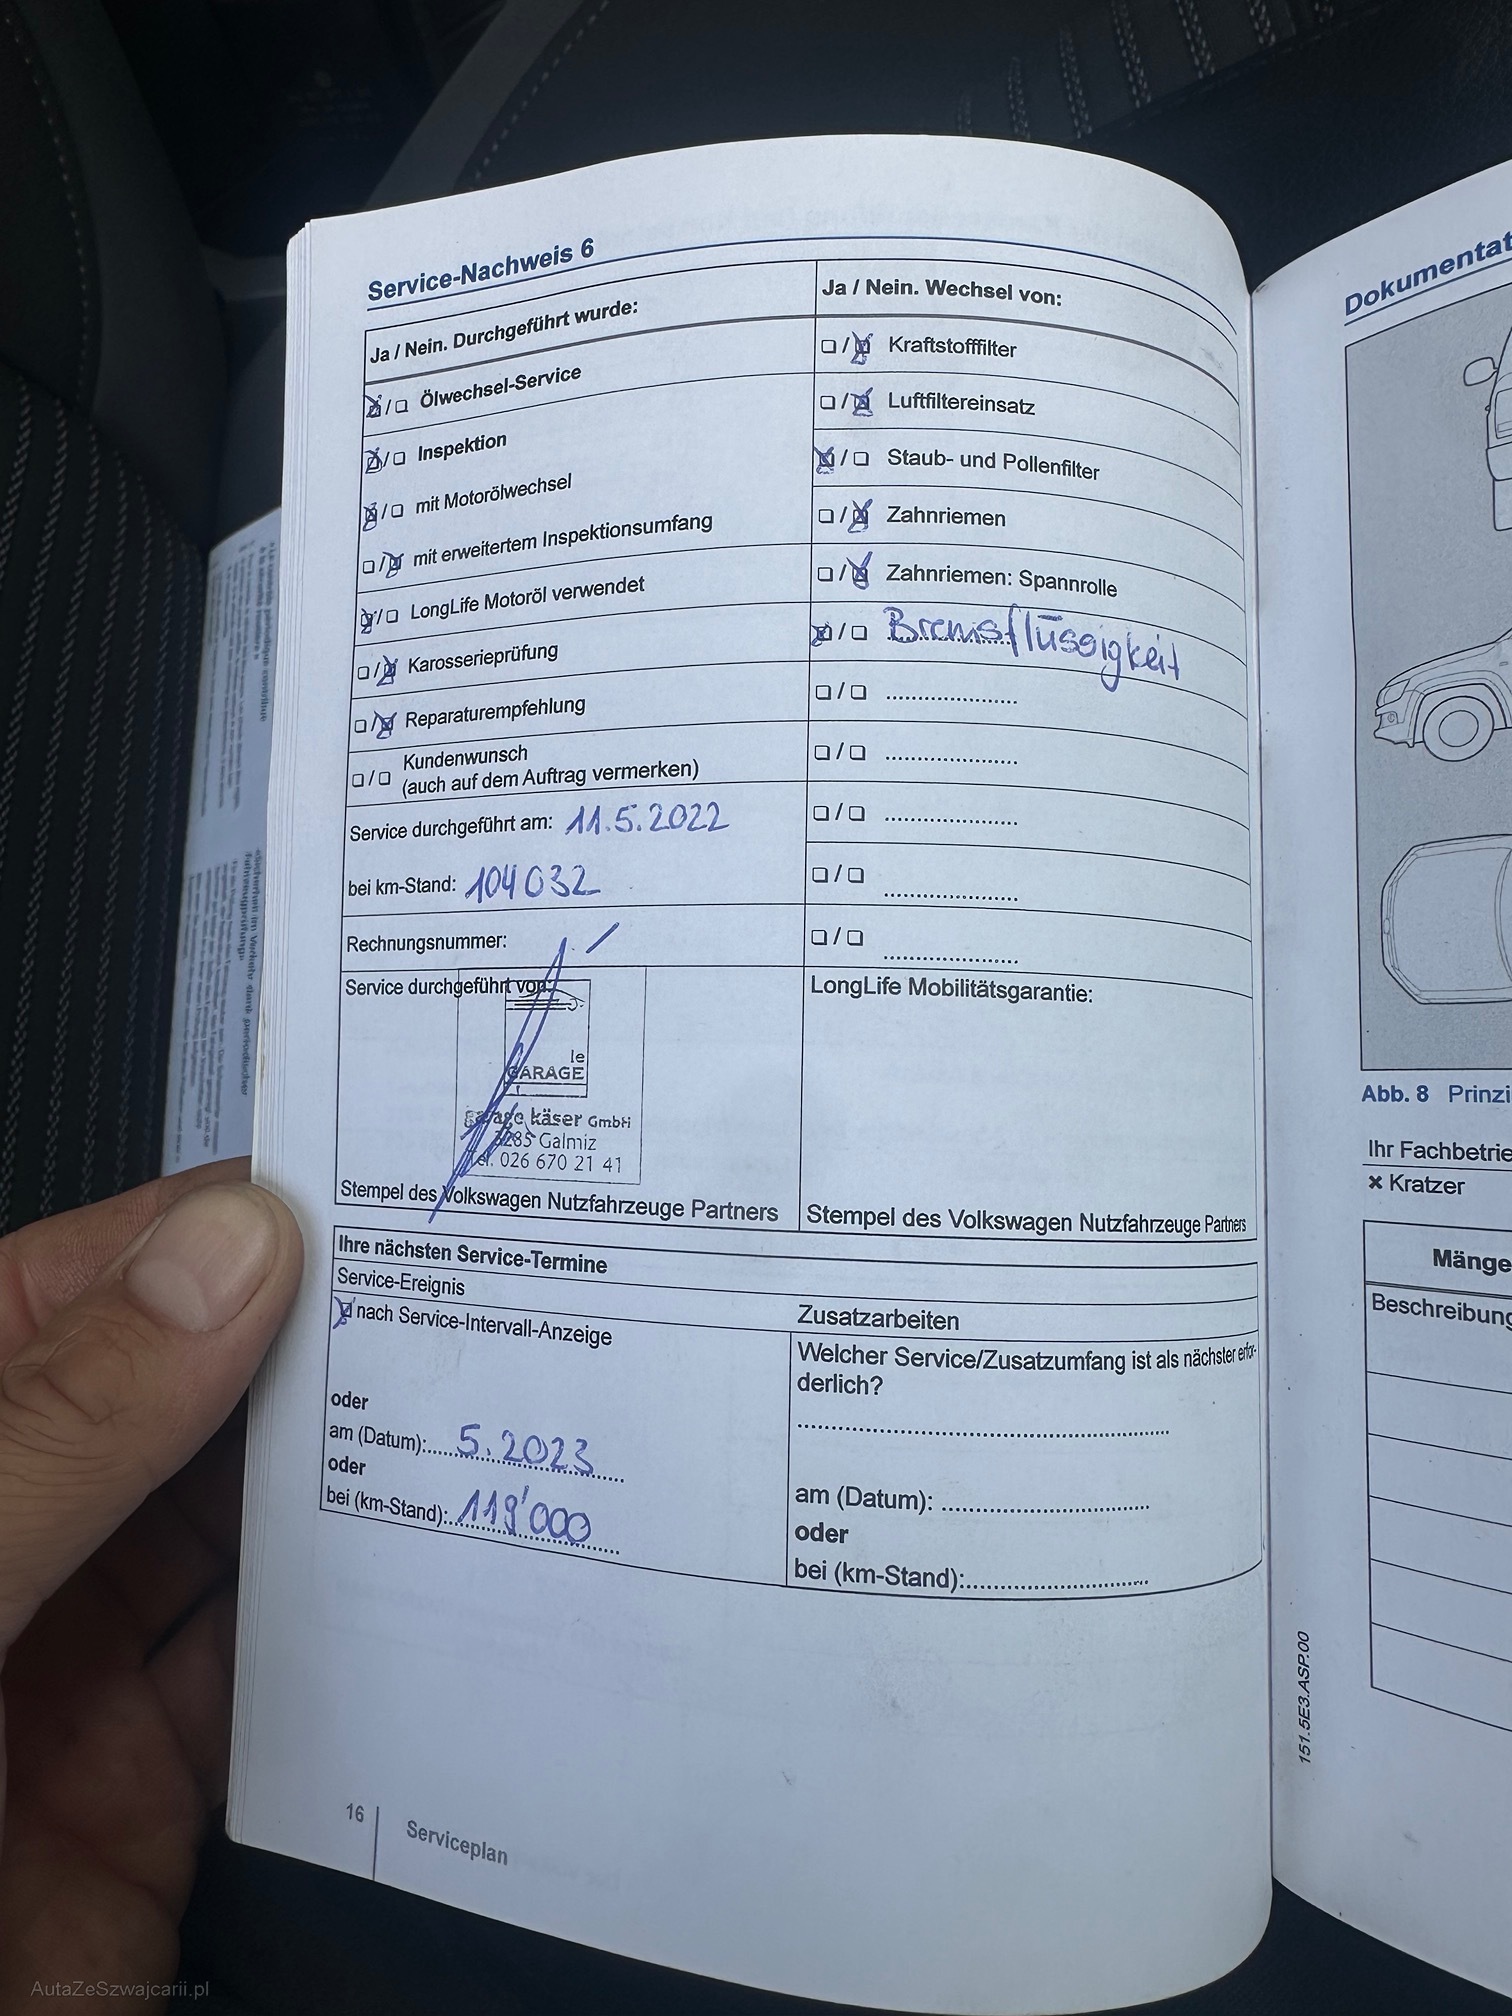 Service-Nachweis 6
Ja / Nein. Durchgeführt wurde:
☒/☐ Ölwechsel-Service
☒/☐ Inspektion
☒/☐ mit Motorölwechsel
☐/☒ mit erweitertem Inspektionsumfang
☒/☐ LongLife Motoröl verwendet
☐/☒ Karosserieprüfung
☐/☒ Reparaturempfehlung
☐/☐ Kundenwunsch
(auch auf dem Auftrag vermerken)
Service durchgeführt am: 11.5.2022
bei km-Stand: 104032
Rechnungsnummer:
Service durchgeführt von:
le
GARAGE
garage käser GmbH
3285 Galmiz
Tel. 026 670 21 41
Stempel des Volkswagen Nutzfahrzeuge Partners
Ja / Nein. Wechsel von:
☐/☒ Kraftstofffilter
☐/☒ Luftfiltereinsatz
☒/☐ Staub- und Pollenfilter
☐/☒ Zahnriemen
☐/☒ Zahnriemen: Spannrolle
☒/☐ Bremsflüssigkeit
☐/☐ ......................
☐/☐ ......................
☐/☐ ......................
☐/☐ ......................
☐/☐ ......................
LongLife Mobilitätsgarantie:
Stempel des Volkswagen Nutzfahrzeuge Partners
Ihre nächsten Service-Termine
Service-Ereignis
☒ nach Service-Intervall-Anzeige
oder
am (Datum): 5.2023
oder
bei (km-Stand): 119'000
Zusatzarbeiten
Welcher Service/Zusatzumfang ist als nächster erfor-
derlich?
am (Datum):
oder
bei (km-Stand):
16 Serviceplan
Dokumentat
Abb. 8 Prinzi
Ihr Fachbetrie
× Kratzer
Mänge
Beschreibung
151.5E3.ASP.00
AutaZeSzwajcarii.pl